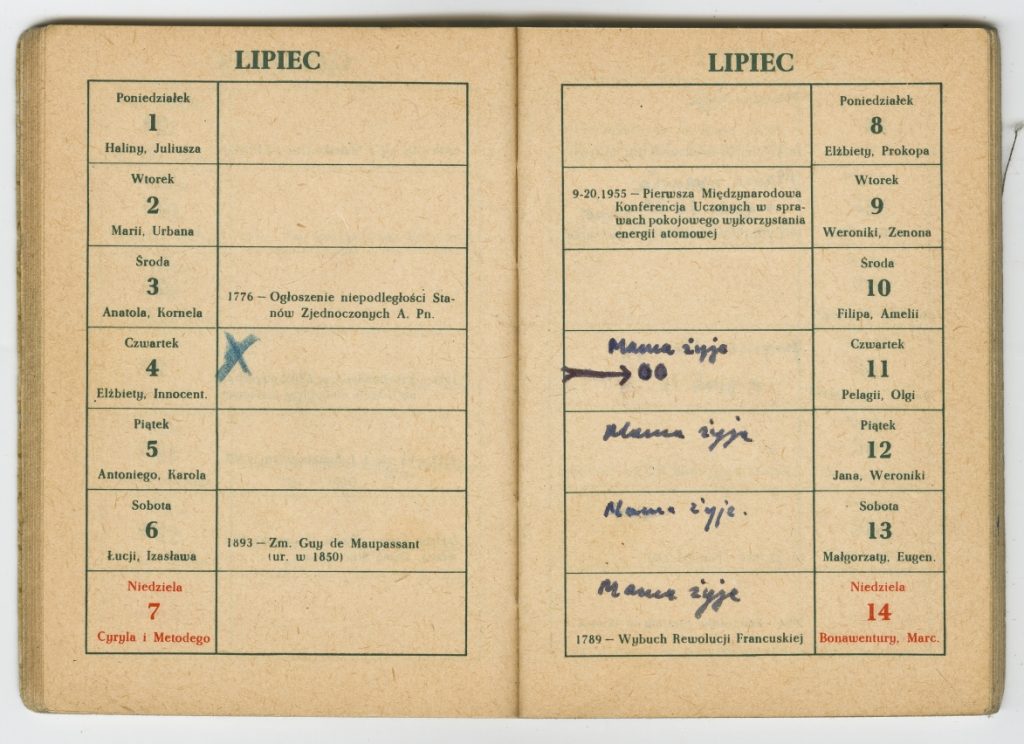 LIPIEC
Poniedziałek
1
Haliny, Juliusza
Wtorek
2
Marii, Urbana
Środa
3
Anatola, Kornela
1776 — Ogłoszenie niepodległości Sta-
nów Zjednoczonych A. Pn.
Czwartek
4
Elżbiety, Innocent.
X
Piątek
5
Antoniego, Karola
Sobota
6
Łucji, Izasława
1893 — Zm. Guy de Maupassant
(ur. w 1850)
Niedziela
7
Cyryla i Metodego
LIPIEC
Poniedziałek
8
Elżbiety, Prokopa
9-20.1955 — Pierwsza Międzynarodowa
Konferencja Uczonych w spra-
wach pokojowego wykorzystania
energii atomowej
Wtorek
9
Weroniki, Zenona
Środa
10
Filipa, Amelii
Mama żyje
Czwartek
11
Pelagii, Olgi
Mama żyje
Piątek
12
Jana, Weroniki
Mama żyje.
Sobota
13
Małgorzaty, Eugen.
Mama żyje
1789 — Wybuch Rewolucji Francuskiej
Niedziela
14
Bonawentury, Marc.